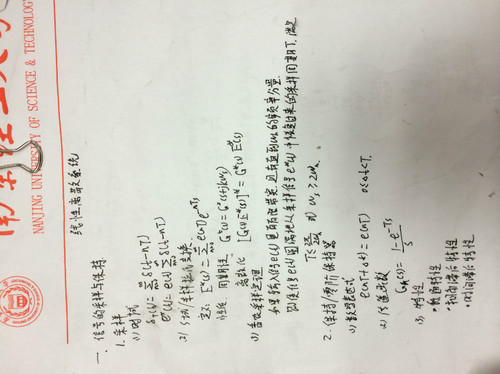 南京理工大学
NANJING UNIVERSITY OF SCIENCE & TECHNOLOGY
线性离散系统
一、信号的采样与保持
1. 采样
(1) 时域
δT(t)=∑n=0∞ δ(t-nT)
e*(t)=e(t)∑n=0∞ δ(t-nT)
(2) S域/采样拉氏变换
定义: E*(s)=∑n=0∞ e(nT)e^-nTs
性质 周期性 G*(s)=G*(s+jkωs)
离散化 [G(s)E*(s)]*=G*(s)E*(s)
(3) 香农采样定理
如果输入信号e(t)具有有限带宽,且有直到ωh的频率分量
则使信号e(t)圆满地从采样信号e*(t)中恢复过来的采样周期T,满足
T≤2π/2ωh 或 ωs≥2ωh
2. 保持/零阶保持器
(1) 数学表达式
e(nT+Δt)=e(nT) 0≤Δt<T
(2) 传递函数
Gh(s)=1-e^-Ts/s
(3) 特性
·低通特性
·相角滞后特性
·时间滞后特性